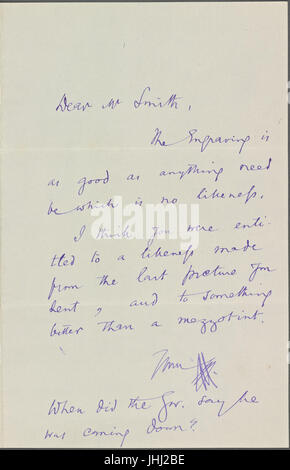 Dear Mr Smith,
The Engraving is
as good as anything need
be which is no likeness.
I think you were enti-
tled to a likeness made
from the last picture you
sent, and to something
better than a mezzotint.
When did the Gov. say he
was coming down?
alamy
Image ID: JHJ2BE
www.alamy.com